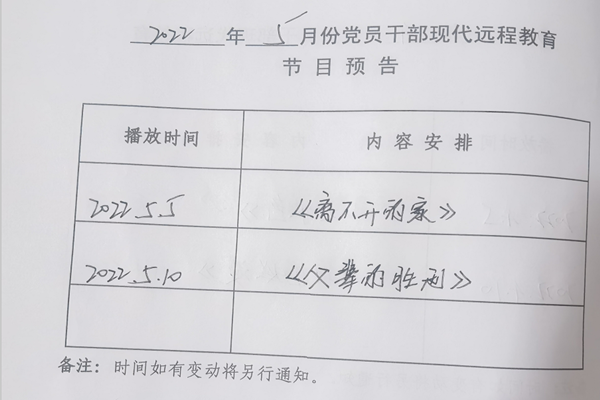 2022年 5月份党员干部现代远程教育
节目预告
播放时间 内容安排
2022.5.5 《离不开的家》
2022.5.10 《父辈的胜利》
备注：时间如有变动将另行通知。